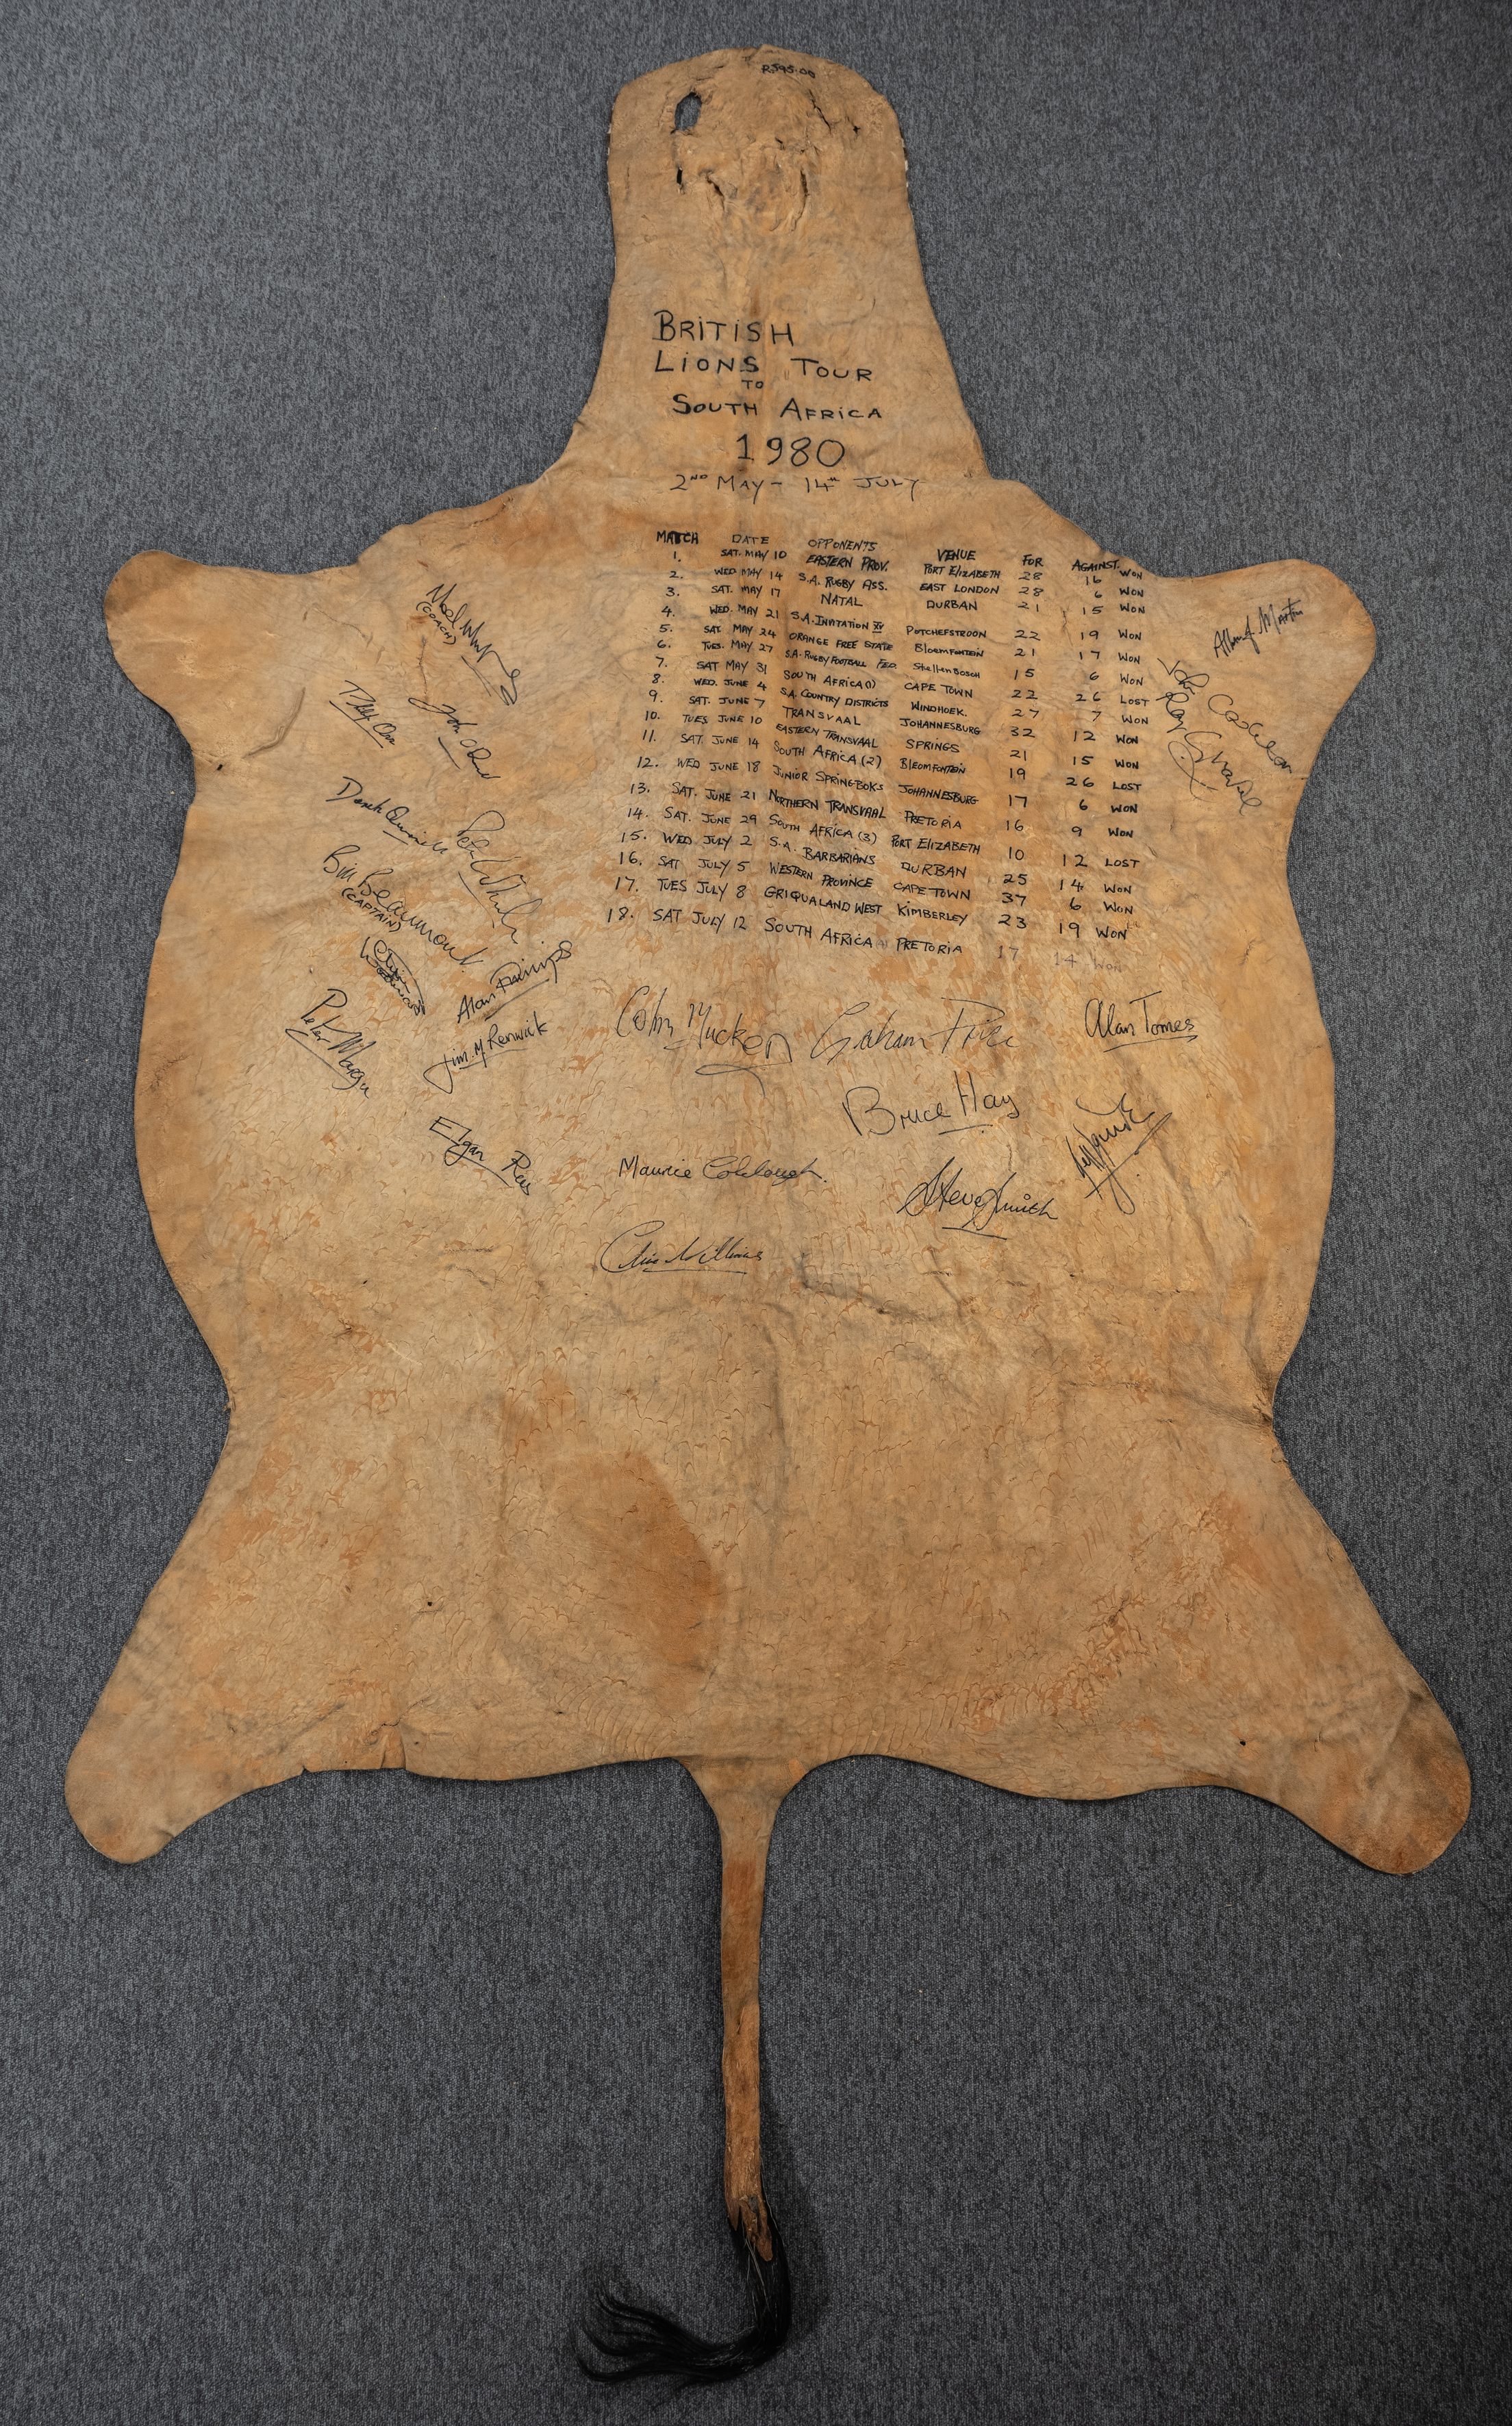 R595.00
BRITISH
LIONS TOUR
TO
SOUTH AFRICA
1980
2ND MAY - 14TH JULY
MATCH DATE OPPONENTS VENUE FOR AGAINST
1. SAT. MAY 10 EASTERN PROV. PORT ELIZABETH 28 16 WON
2. WED MAY 14 S.A. RUGBY ASS. EAST LONDON 28 6 WON
3. SAT. MAY 17 NATAL DURBAN 21 15 WON
4. WED. MAY 21 S.A. INVITATION XV POTCHEFSTROON 22 19 WON
5. SAT. MAY 24 ORANGE FREE STATE BLOEMFONTEIN 21 17 WON
6. TUES. MAY 27 S.A. RUGBY FOOTBALL FED. STELLENBOSCH 15 6 WON
7. SAT MAY 31 SOUTH AFRICA (1) CAPE TOWN 22 26 LOST
8. WED. JUNE 4 S.A. COUNTRY DISTRICTS WINDHOEK. 27 7 WON
9. SAT. JUNE 7 TRANSVAAL JOHANNESBURG 32 12 WON
10. TUES JUNE 10 EASTERN TRANSVAAL SPRINGS 21 15 WON
11. SAT. JUNE 14 SOUTH AFRICA (2) BLEOMFONTEIN 19 26 LOST
12. WED JUNE 18 JUNIOR SPRINGBOKS JOHANNESBURG 17 6 WON
13. SAT. JUNE 21 NORTHERN TRANSVAAL PRETORIA 16 9 WON
14. SAT. JUNE 29 SOUTH AFRICA (3) PORT ELIZABETH 10 12 LOST
15. WED JULY 2 S.A. BARBARIANS DURBAN 25 14 WON
16. SAT JULY 5 WESTERN PROVINCE CAPE TOWN 37 6 WON
17. TUES JULY 8 GRIQUALAND WEST KIMBERLEY 23 19 WON
18. SAT JULY 12 SOUTH AFRICA PRETORIA 17 14 WON
(COACH)
John O'Driscoll
Derek Quinnell
Bill Beaumont
(CAPTAIN)
Peter Morgan
Alan Phillips
Jim. M Renwick
Elgan Rees
Allan J. Martin
John Carleton
Ray Gravell
Colm Tucker
Graham Price
Alan Tomes
Bruce Hay
Maurice Colclough.
Steve Smith
Clive Williams